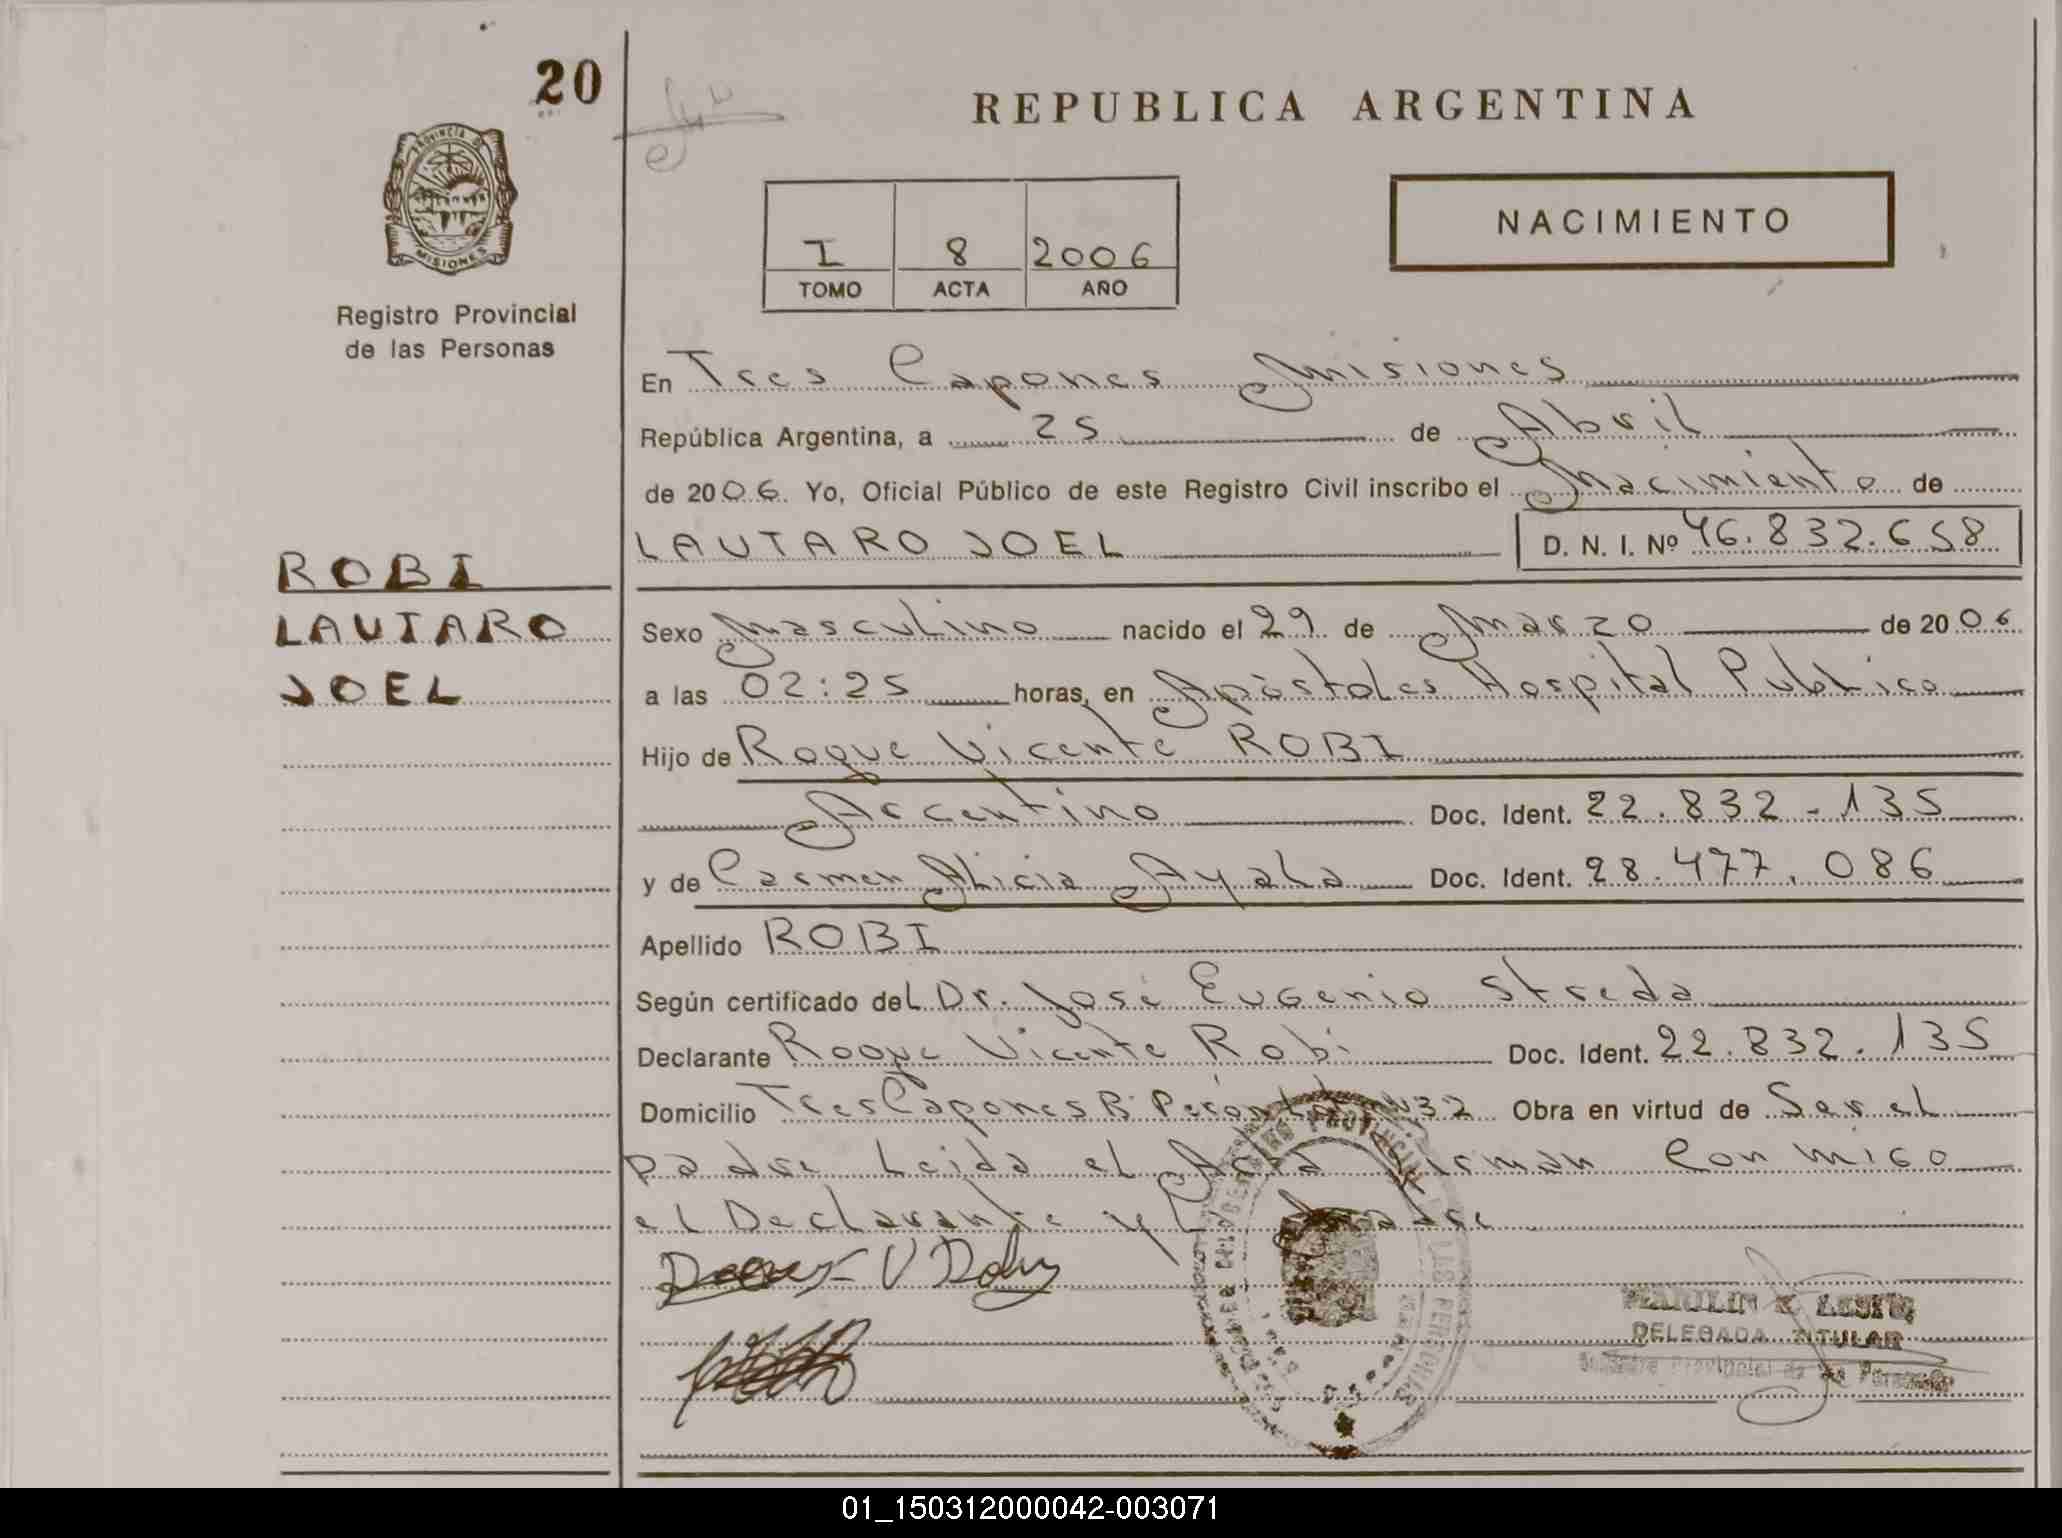 20
REPUBLICA ARGENTINA
PROVINCIA DE
MISIONES
Registro Provincial
de las Personas
NACIMIENTO
I 8 2006
TOMO ACTA AÑO
En Tres Capones Misiones
República Argentina, a 25 de Abril
de 2006. Yo, Oficial Público de este Registro Civil inscribo el Nacimiento de
LAUTARO JOEL D. N. I. Nº 46.832.658
ROBI
LAUTARO
JOEL
Sexo Masculino nacido el 29 de Marzo de 2006
a las 02:25 horas, en Apóstoles Hospital Publico
Hijo de Roque Vicente ROBI
Argentino Doc. Ident. 22.832-135
y de Carmen Alicia Ayala Doc. Ident. 28.477.086
Apellido ROBI
Según certificado del Dr. José Eugenio Streda
Declarante Roque Vicente Robi Doc. Ident. 22.832.135
Domicilio Tres Capones Bº Perón 32 Obra en virtud de Ser el
padre Leida el Acta Firman Conmigo
el Declarante y la Madre
DELEGADA TITULAR
Registro Provincial de las Personas
01_150312000042-003071